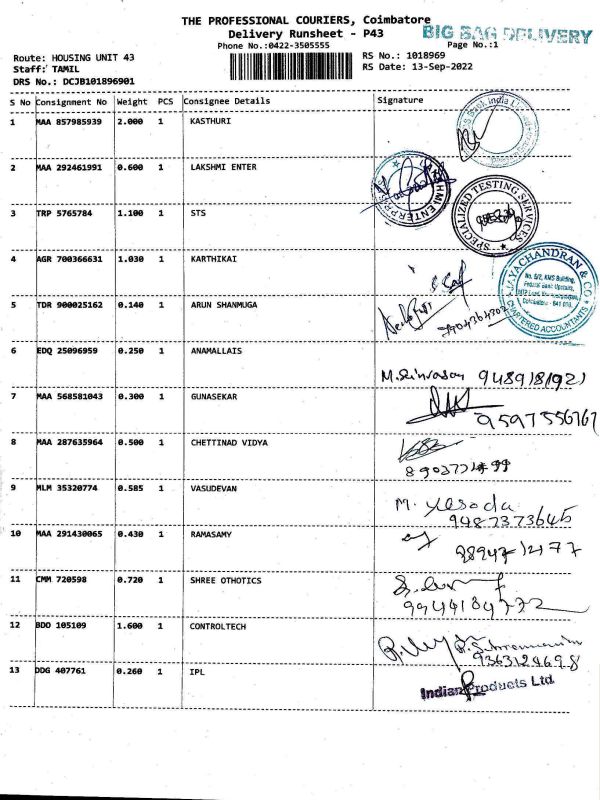 THE PROFESSIONAL COURIERS, Coimbatore
Delivery Runsheet - P43
BIG BAG DELIVERY
Phone No.:0422-3505555
Page No.:1
Route: HOUSING UNIT 43
RS No.: 1018969
Staff: TAMIL
RS Date: 13-Sep-2022
DRS No.: DCJB101896901
S No Consignment No Weight PCS Consignee Details Signature
1 MAA 857985939 2.000 1 KASTHURI
2 MAA 292461991 0.600 1 LAKSHMI ENTER
3 TRP 5765784 1.100 1 STS
SPECIALIZED TESTING SERVICES
4 AGR 700366631 1.030 1 KARTHIKAI
JAYACHANDRAN & CO
No. 5/2, KMS Building,
Federal Bank Upstairs,
Coimbatore - 641 018.
CHARTERED ACCOUNTANTS
5 TDR 900025162 0.140 1 ARUN SHANMUGA
6 EDQ 25096959 0.250 1 ANAMALLAIS
M. Srinivasan 9489181921
7 MAA 568581043 0.300 1 GUNASEKAR
9597556767
8 MAA 287635964 0.500 1 CHETTINAD VIDYA
9 MLM 35320774 0.585 1 VASUDEVAN
M. Yesoda
9487373645
10 MAA 291430065 0.430 1 RAMASAMY
11 CMM 720598 0.720 1 SHREE OTHOTICS
12 BDO 105109 1.600 1 CONTROLTECH
9363124698
13 DDG 407761 0.260 1 IPL
Indian Products Ltd